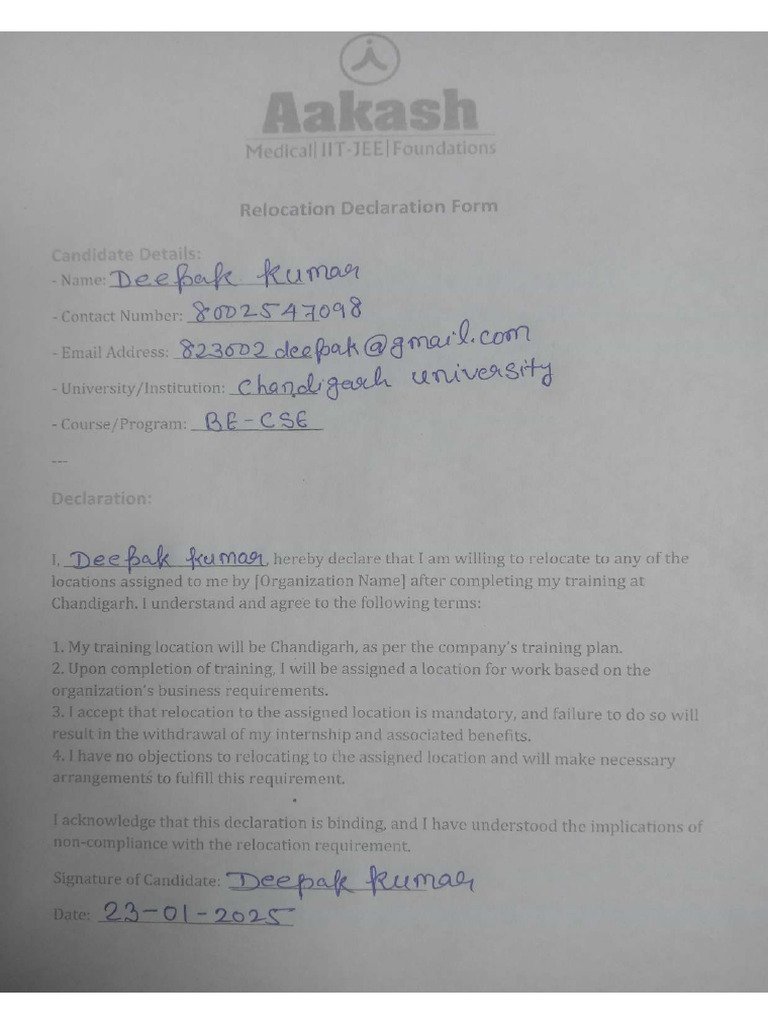 Aakash
Medical|IIT-JEE|Foundations
Relocation Declaration Form
Candidate Details:
- Name: Deepak Kumar
- Contact Number: 8002547098
- Email Address: 823002deepak@gmail.com
- University/Institution: Chandigarh University
- Course/Program: BE-CSE
---
Declaration:
I, Deepak Kumar, hereby declare that I am willing to relocate to any of the
locations assigned to me by [Organization Name] after completing my training at
Chandigarh. I understand and agree to the following terms:
1. My training location will be Chandigarh, as per the company's training plan.
2. Upon completion of training, I will be assigned a location for work based on the
organization's business requirements.
3. I accept that relocation to the assigned location is mandatory, and failure to do so will
result in the withdrawal of my internship and associated benefits.
4. I have no objections to relocating to the assigned location and will make necessary
arrangements to fulfill this requirement.
I acknowledge that this declaration is binding, and I have understood the implications of
non-compliance with the relocation requirement.
Signature of Candidate: Deepak Kumar
Date: 23-01-2025